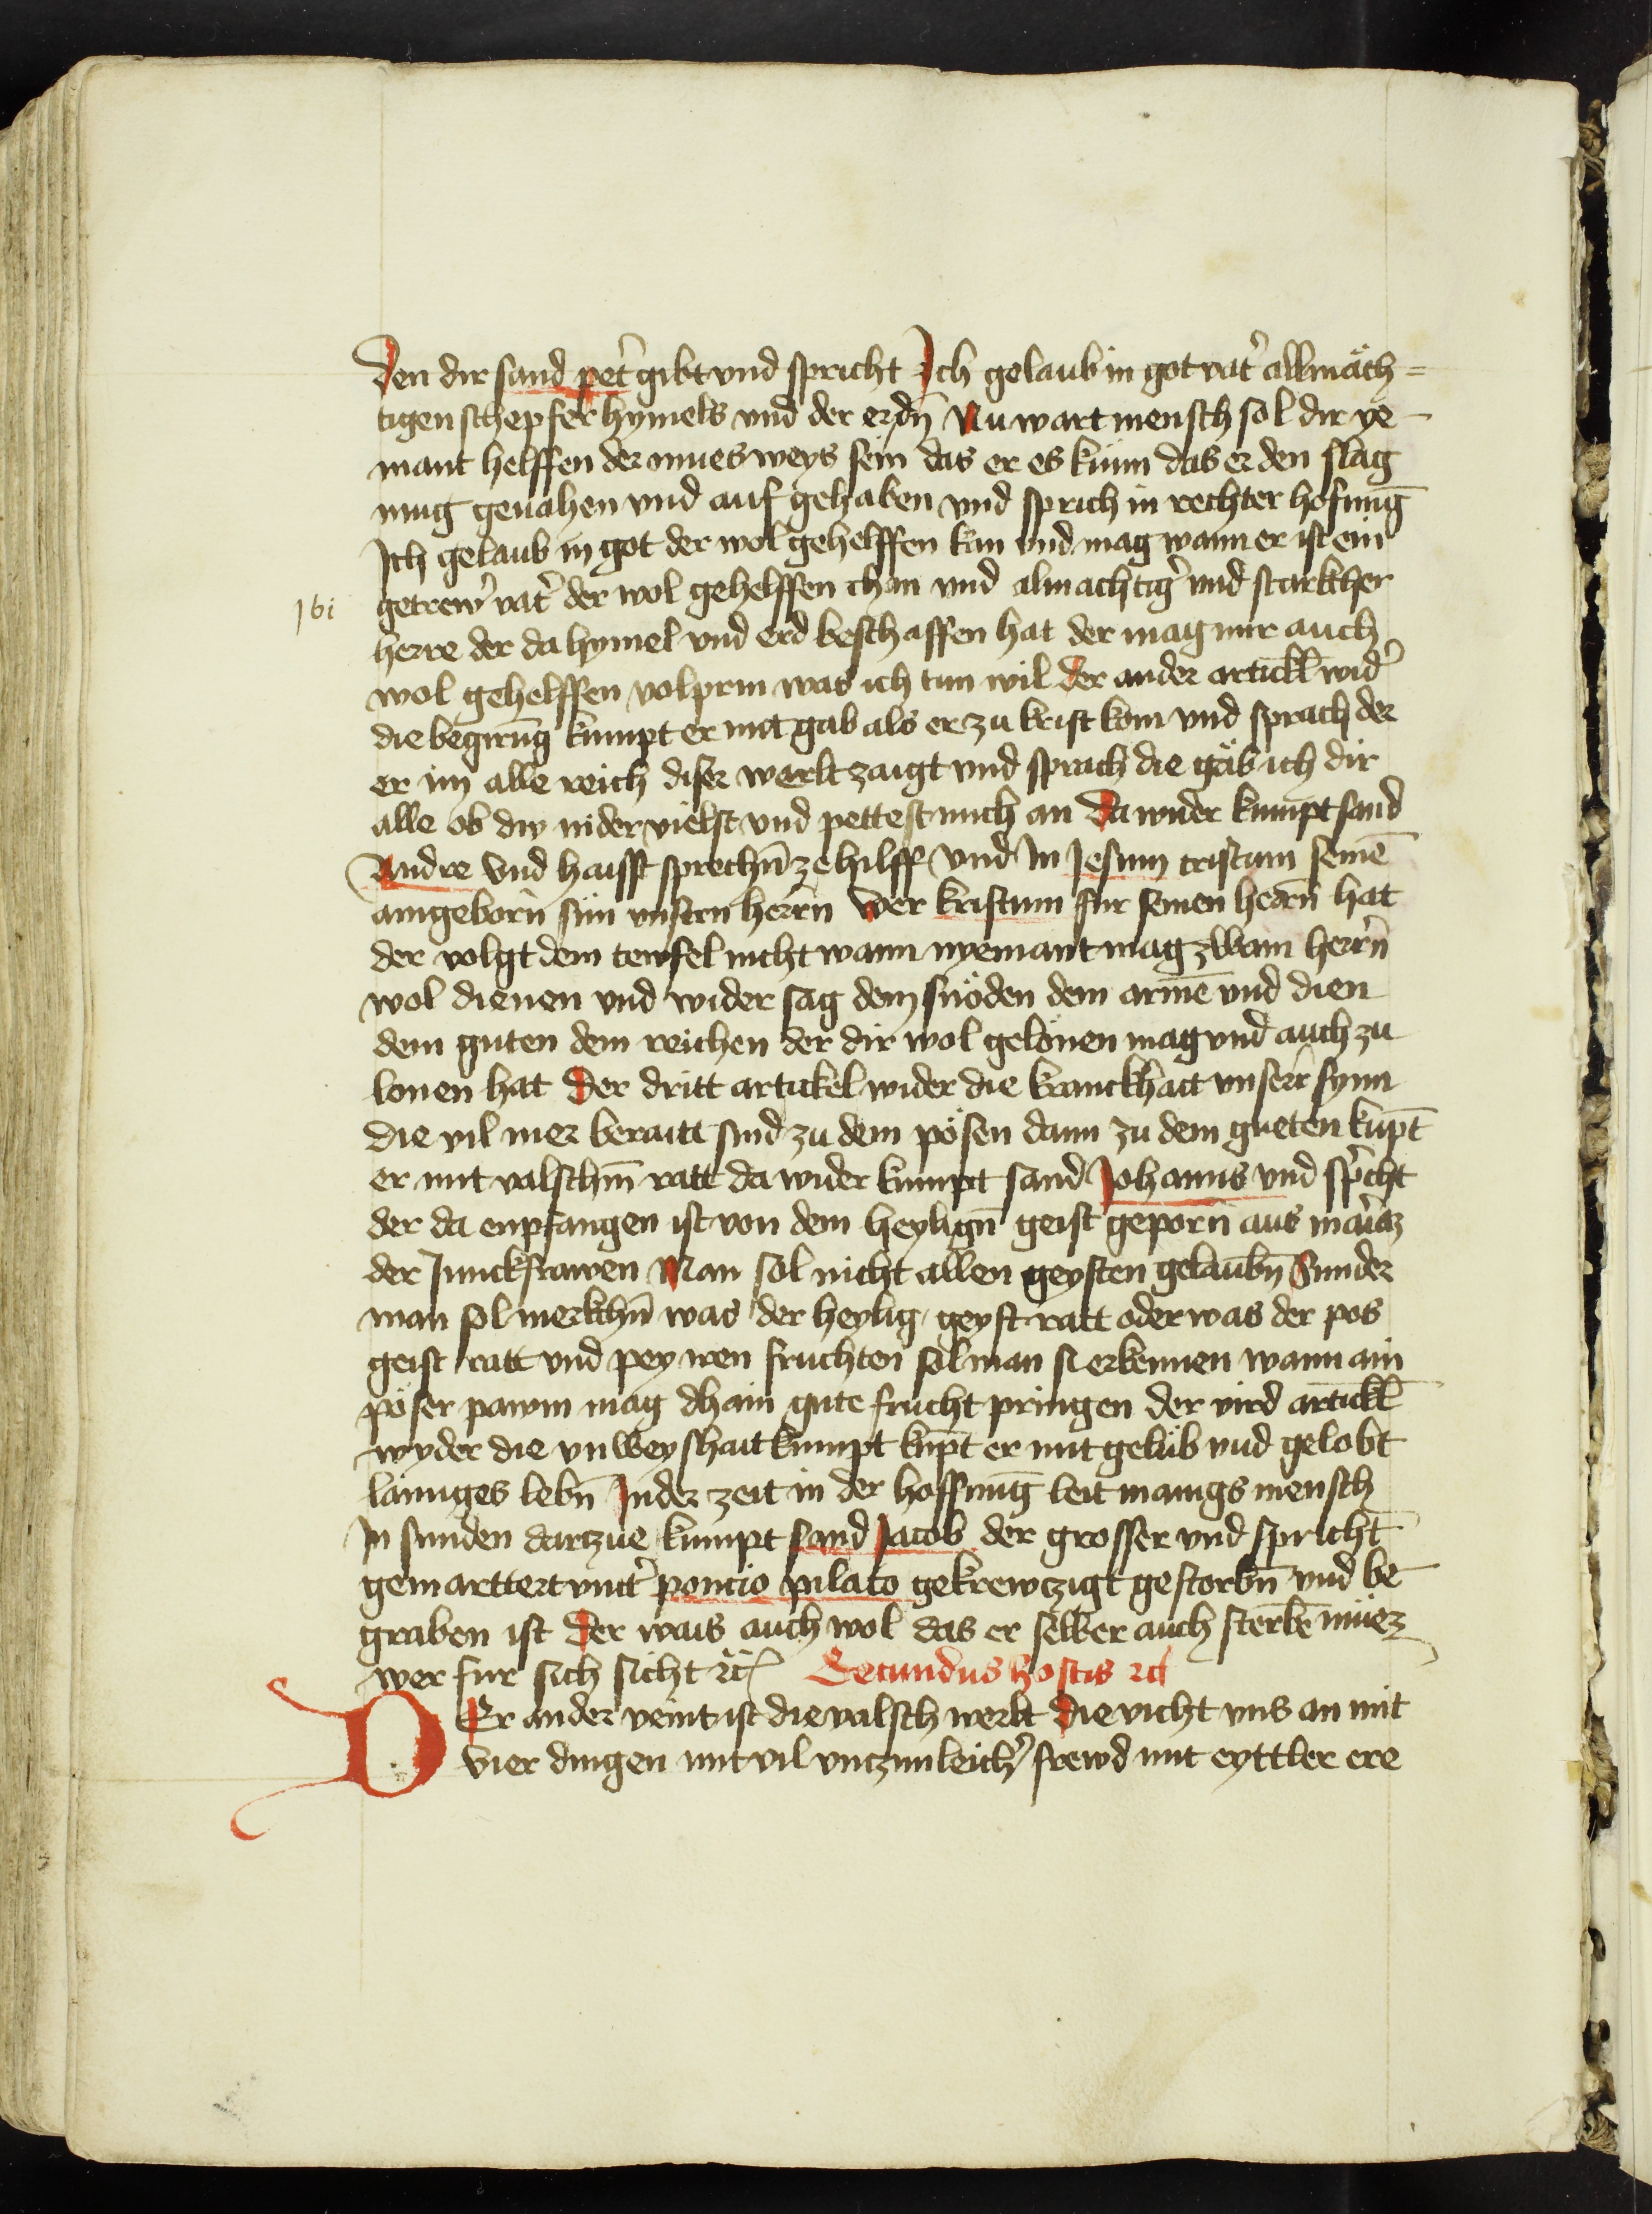 Den dir sand pet̾ gibt vnd spricht Ich gelaub in got vat̾ allmäch=
tigen schepfer hymels vnd der erdn̄ Nu wart mensch sol dir ye-
mant helffen der mues weys sein das er es kunn das er den slag
mug geuahen vnd auf gehaben vnd sprich in rechter hofnung
Ich gelaub in got der wol gehelffen kan vnd mag wann er ist ein
getrew̾ vat̾ der wol gehelffen chan vnd almachtig̾ vnd starkher
ibi
herre der da hymel vnd erd beschaffen hat der mag mir auch
wol gehelffen volprin was ich tun wil der ander artickl̄ wid̾
die begirūg kumpt er mit gab als er zu krist kom vnd sprach der
er im alle reich diser werlt zaigt vnd sprach die gäb ich dir
alle ob dw nider vielst vnd pettest mich an Da wider kumpt sand
Andre vnd haisst sprechn̄ ze hilff vnd In Jesum cristum seinē
aingeborn̄ sun vnsern herrn̄ wer kristum fur seinen herrn̄ hat
der volgt dem tewfel nicht wann nyemant mag zwain herrn̄
wol dienen vnd wider sag dem snöden dem armē vnd dien
dem guten dem reichen der dir wol gelonen mag vnd auch zu
lonen hat Der dritt artickel wider die kranckhait vnserr synn
die vil mer beraitt sind zu dem pösen dann zu dem gueten kupt̄
er mit valschm̄ ratt da wider kumpt sand Johanns vnd sp̾icht
der da enpfangen ist von dem heylign̄ geist geporn̄ aus mar̾ia
der Junckfrawen Man sol nicht allen geysten gelaubn̄ Sunder
man sol merkchn̄ was der heylig geyst ratt oder was der pos
geist ratt vnd pey iren fruchten sol man si erkennen wann ain
pöser pawm mag chain gute frucht pringen der vird artickl̄
wyder die vnweyshait kumpt kupt̄ er mit gelüb vnd gelobt
lannges lebn̄ Inder zeit in der hoffnung leit manigs mensch
In sunden darzue kumpt sand Jacob der grosser vnd spricht
gemarttert vnnt̾ poncio pilato gekrewczigt gestorbn̄ vnd be-
graben ist der wais auch wol das er selber auch sterbē müez
wer fur sich sicht ꝛc̄ Secundus hostis ꝛc̄
DEr ander veint ist die valsch werlt die vicht vns an mit
vier dingen mit vil vnczimleich̾ frewd mit eyttler ere